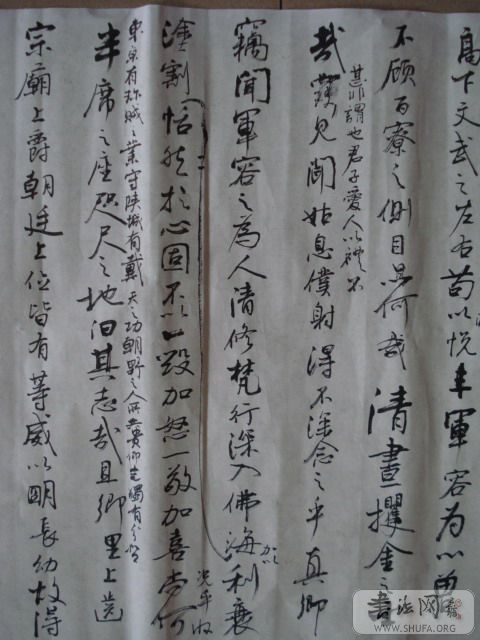 高下文武之左右苟以悦軍容为心曾
不顧百寮之側目何哉清晝攫金之
甚非謂也君子愛人以禮不
哉見聞姑息僕射得不深念之乎真卿
竊聞軍容之為人清修梵行深入佛海利衰
加以
況乎收
塗割恬然於心固不以一毀加怒一敬加喜尚何
東京有殄賊之業守陝城有戴天之功朝野之人所共貴仰豈獨有分
半席之座咫尺之地汩其志哉且鄉里上齒
宗廟上爵朝廷上位皆有等威以明長幼故得
书法网
WWW.SHUFA.ORG